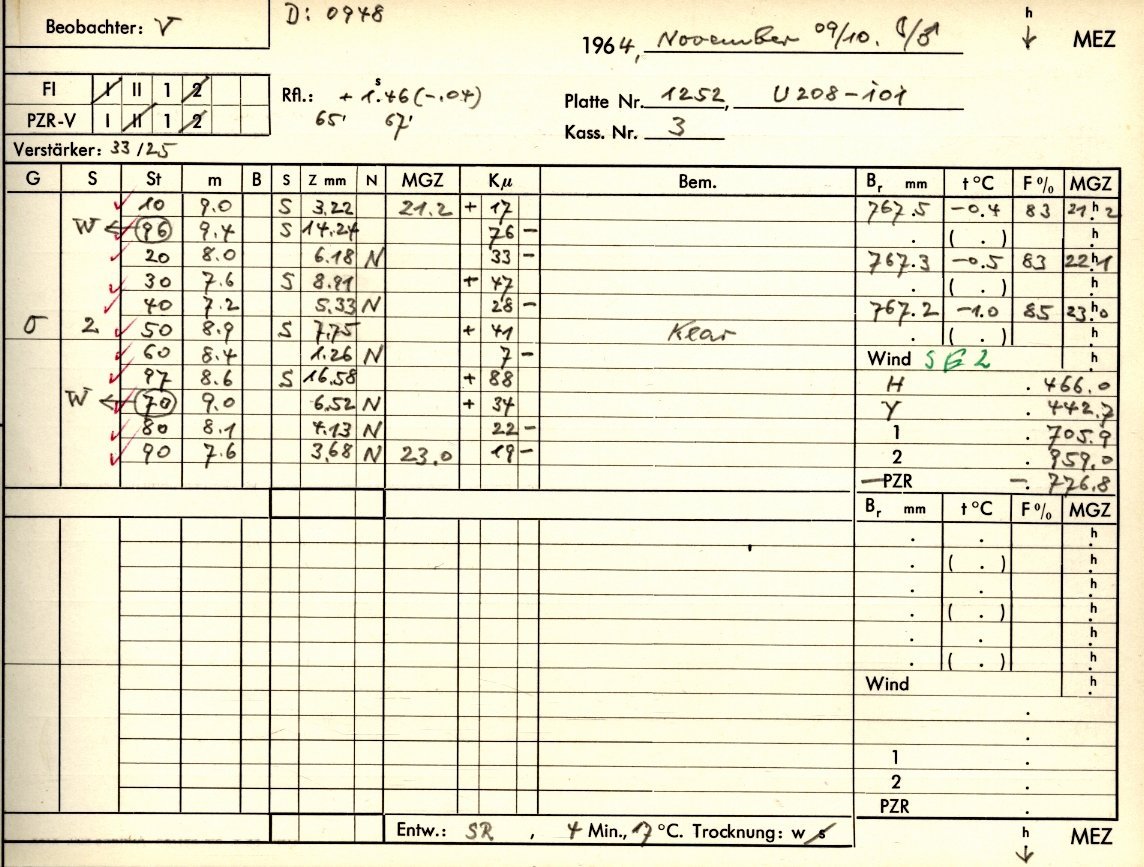 Beobachter: V
D: 0948
1964, November 09/10.
h MEZ
FI I II 1 2
RA.: + 1.46 (-.04)
s
PZR-V I II 1 2
65' 67'
Platte Nr. 1252, U208-101
Kass. Nr. 3
Verstärker: 33/25
G S St m B S Z mm N MGZ Kμ Bem. Br mm t°C F% MGZ
10 9.0 S 3.22 21.2 + 17 767.5 -0.4 83 21h2
W ← 96 9.4 S 14.24 76 - . ( . ) h
20 8.0 6.18 N 33 - 767.3 -0.5 83 22h1
30 7.6 S 8.91 + 47 . ( . ) h
40 7.2 5.33 N 28 - 767.2 -1.0 85 23h0
σ 2 50 8.9 S 7.75 + 41 Klar . ( . ) h
60 8.4 1.26 N 7 - Wind SE 2 h
97 8.6 S 16.58 + 88 H . 466.0
W ← 70 9.0 6.52 N + 34 Y . 442.7
80 8.1 4.13 N 22 - 1 . 705.9
90 7.6 3.68 N 23.0 19 - 2 . 959.0
PZR -. 776.8
Br mm t°C F% MGZ
. . h
. ( . ) h
. . h
. ( . ) h
. . h
. ( . ) h
Wind h
.
.
1 .
2 .
PZR .
Entw.: SR, 4 Min., 17 °C. Trocknung: w s
h MEZ